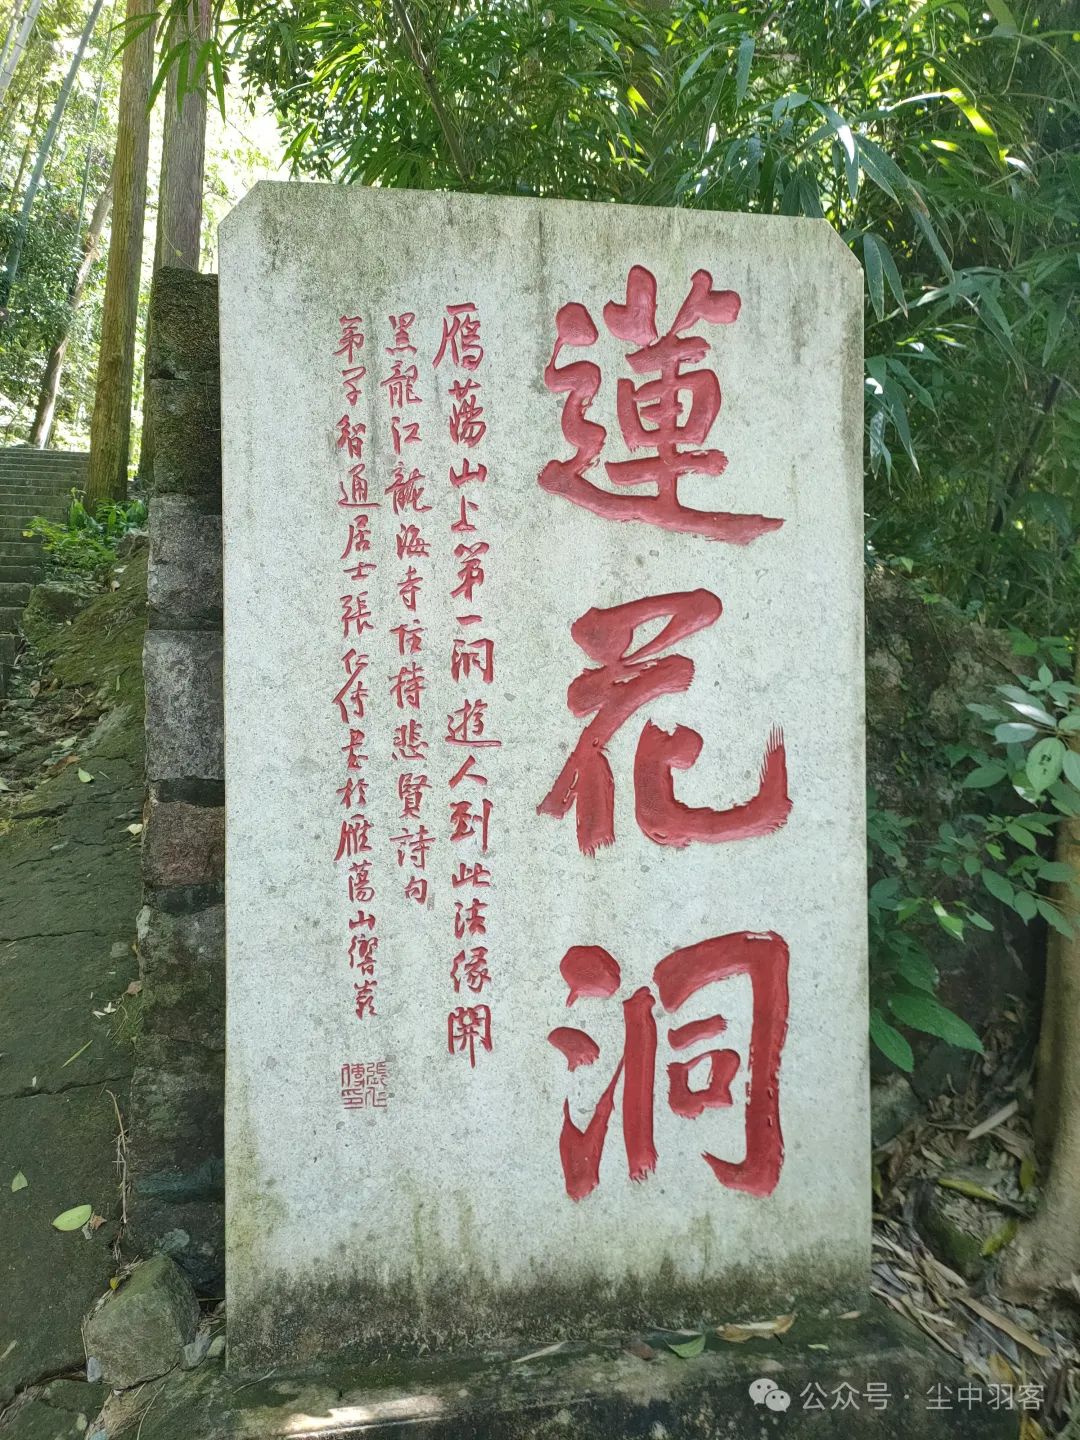 蓮花洞
鴈蕩山上第一洞遊人到此法緣開
黑龍江龍海寺住持悲賢詩句
第子智通居士張仁传書於雁蕩山響岩
張仁傳印
公众号·尘中羽客